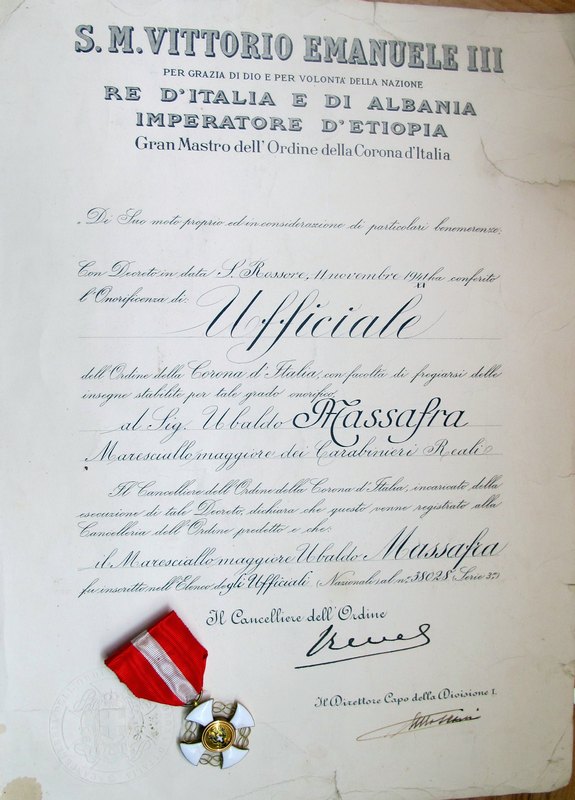 S. M. VITTORIO EMANUELE III
PER GRAZIA DI DIO E PER VOLONTA' DELLA NAZIONE
RE D'ITALIA E DI ALBANIA
IMPERATORE D'ETIOPIA
Gran Mastro dell'Ordine della Corona d'Italia
Di Suo moto proprio ed in considerazione di particolari benemerenze;
Con Decreto in data S. Rossore, 11 novembre 1941 ha conferito
l'Onorificenza di:
Ufficiale
dell'Ordine della Corona d'Italia, con facoltà di fregiarsi delle
insegne stabilite per tale grado onorifico,
al Sig. Ubaldo Massafra
Maresciallo maggiore dei Carabinieri Reali
Il Cancelliere dell'Ordine della Corona d'Italia, incaricato della
esecuzione di tale Decreto, dichiara che questo venne registrato alla
Cancelleria dell'Ordine predetto e che:
il Maresciallo maggiore Ubaldo Massafra
fu inscritto nell'Elenco degli Ufficiali (Nazionale) al n.° 38028 (Serie 3ª)
Il Cancelliere dell'Ordine
Il Direttore Capo della Divisione I.